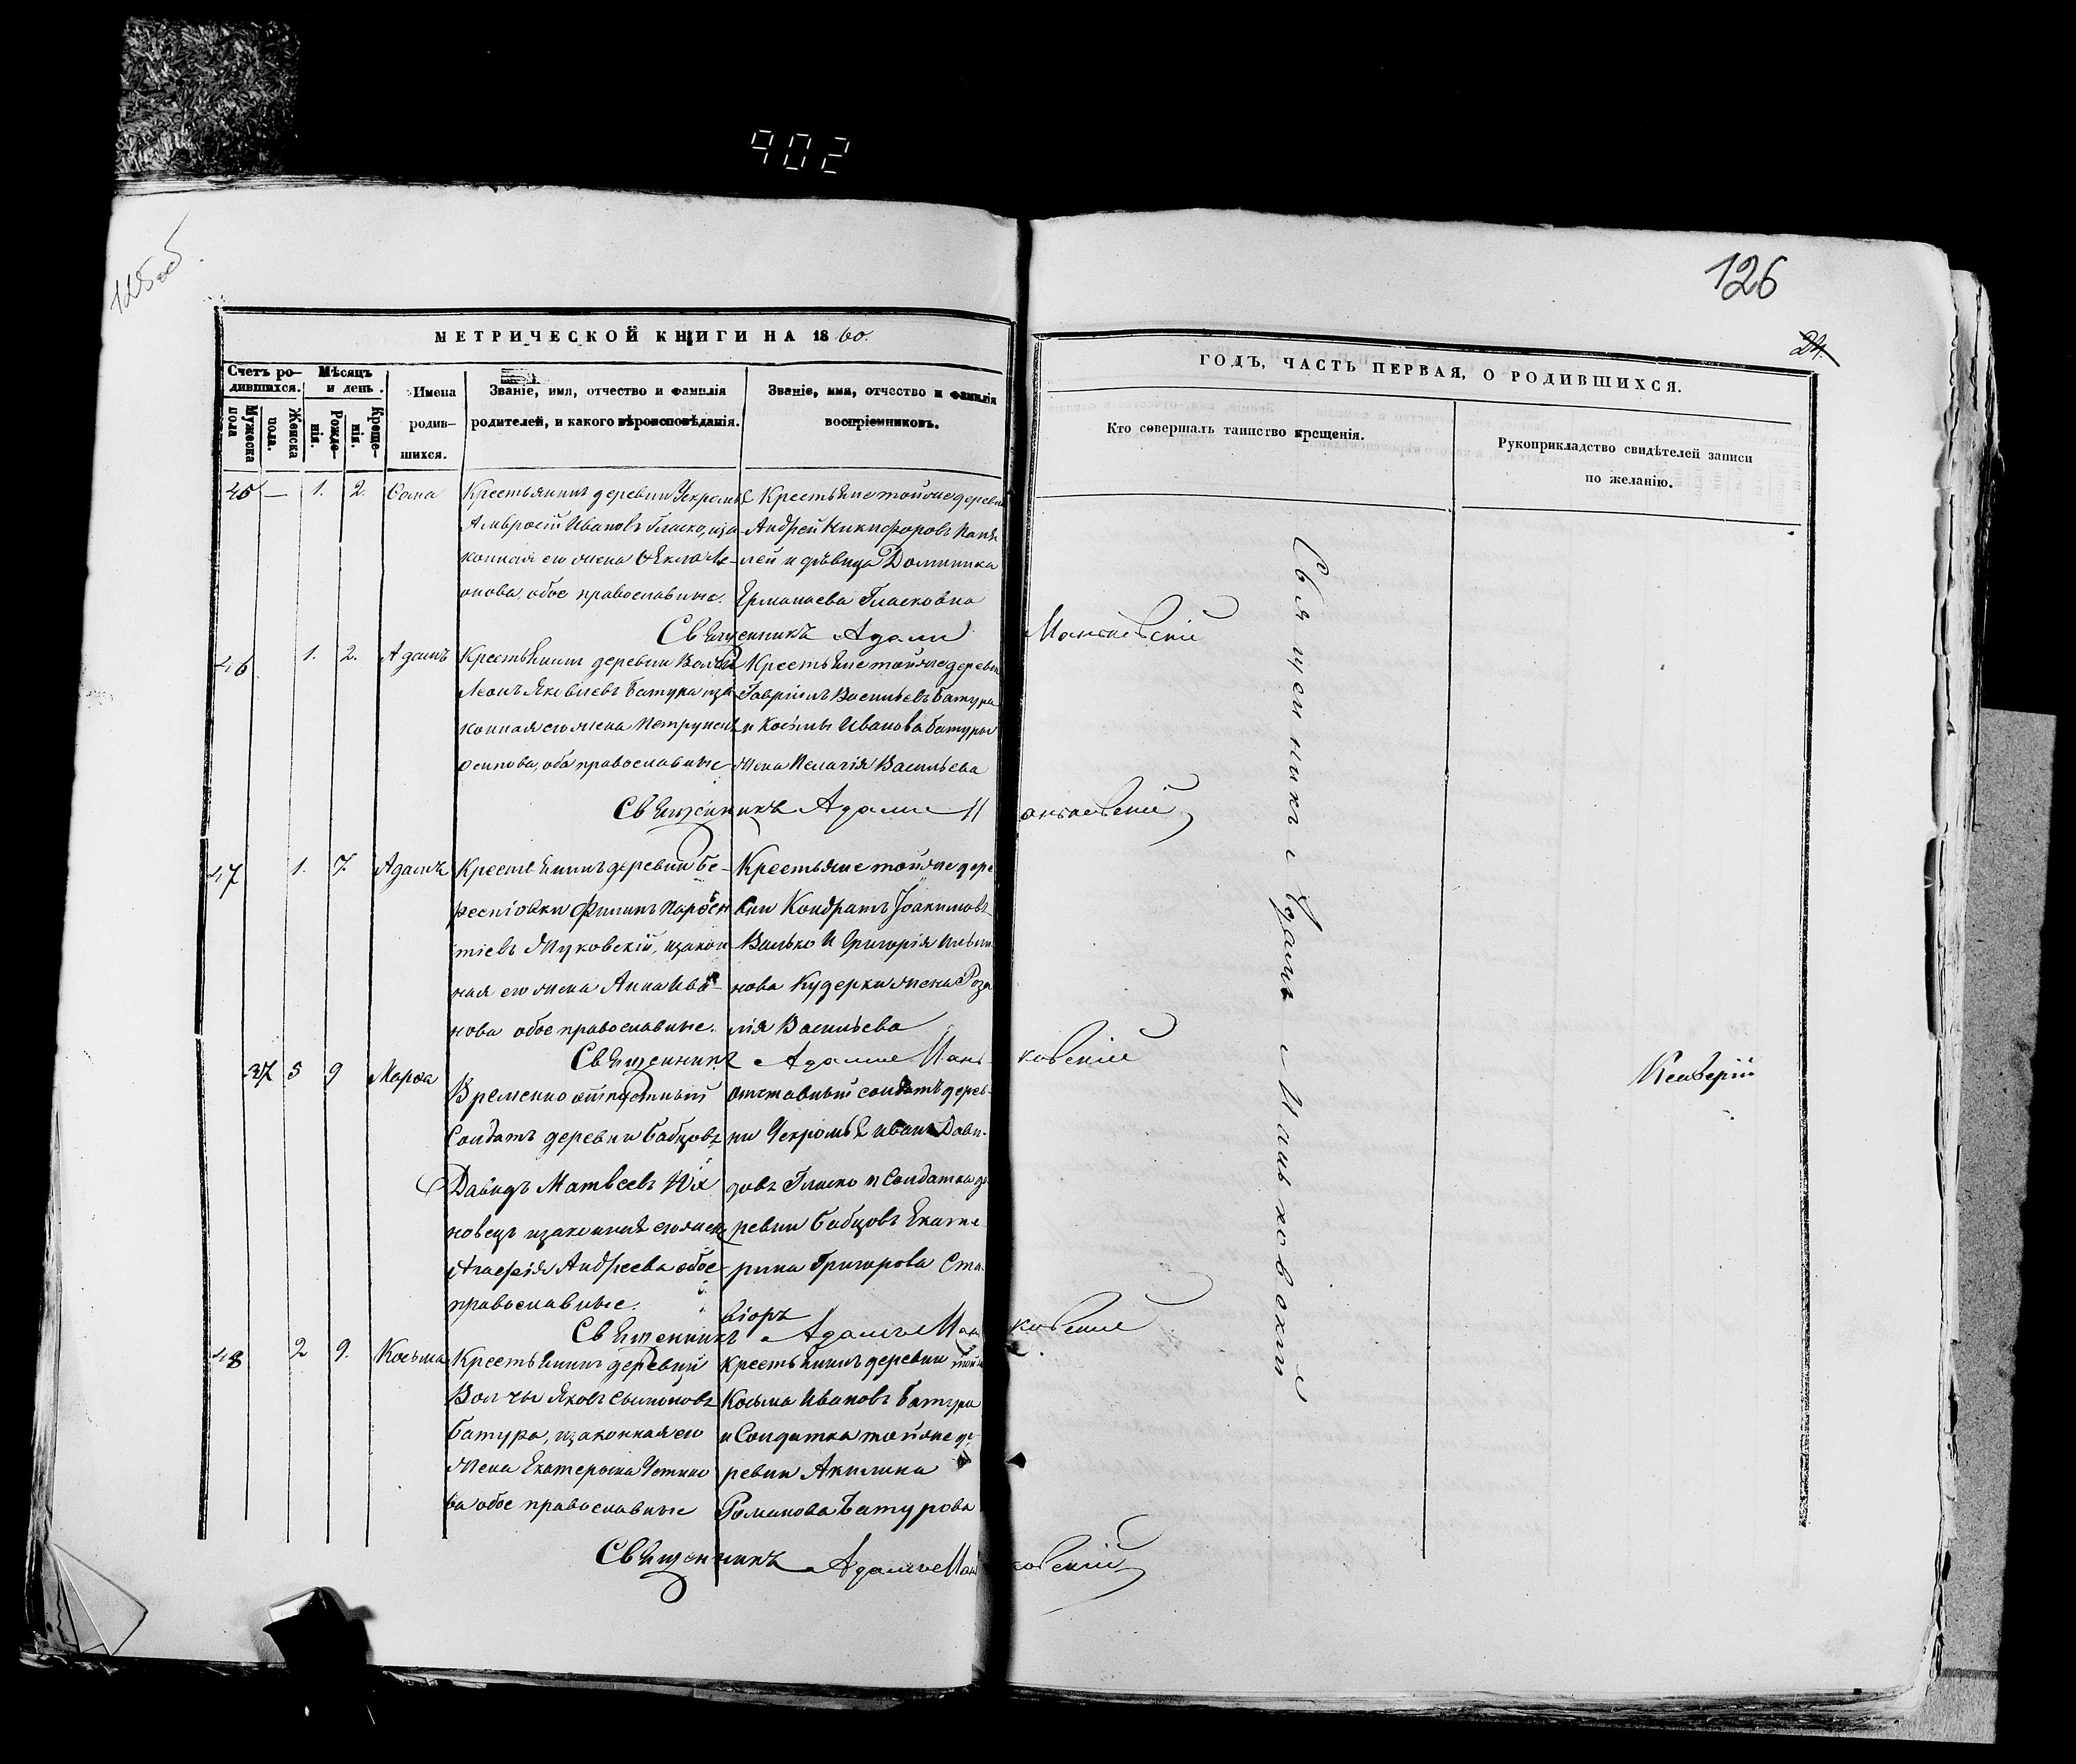 902
125 об.
126
24.
МЕТРИЧЕСКОЙ КНИГИ НА 1860.
ГОДЪ, ЧАСТЬ ПЕРВАЯ, О РОДИВШИХСЯ.
Счетъ родившихся.
Мужеска пола
Женска пола.
Мѣсяцъ и день.
Рожденія.
Крещенія.
Имена родившихся.
Званіе, имя, отчество и фамилія
родителей, и какого вѣроисповѣданія.
Званіе, имя, отчество и фамилія
воспріемниковъ.
Кто совершалъ таинство крещенія.
Рукоприкладство свидѣтелей записи
по желанію.
45 — 1. 2. Ѳома
Крестьянинъ деревни
Амвросій Ивановъ Гласко, и за-
конная его жена Ѳекла Ле-
онова, обое православные.
Крестьяне тойже деревни
Андрей Никифоровъ
и дѣвица Доминика
Ермолаева Гласковна
Священникъ Адамъ Маньковскій
46 1. 2. Адамъ
Крестьянинъ деревни Волчы
Леонъ Яковлевъ Батура и за
конная его жена
Осипова, оба православные
Крестьяне тойже деревни
Гавріилъ Васильевъ Батура
и Косьмы Иванова Батуры
жена Пелагія Васильева
Священникъ Адамъ Маньковскій
47 1. 7. Адамъ
Крестьянинъ деревни Бе-
Филипъ Парѳен
тіевъ Жуковскій, и закон
ная его жена Анна Ива-
нова обое православные.
Крестьяне тойже дере
вни Кондратъ Іоакимовъ
Валько и Григорія
нова Кудерки жена Роза
лія Васильева
Священникъ Адамъ Маньковскій
37 5 9 Марѳа
Временно отпускный
Солдатъ деревни Бабцовъ
Давидъ Матвеевъ
новецъ и законная его жена
Агафія Андреева обое
православные.
Отставный солдатъ дерев-
ни Иванъ Дави-
довъ Гласко и Солдатка де
ревни Бабцовъ Екате
рина Григорова Ста-
віоръ
Священникъ Адамъ Маньковскій
48 2 9. Косьма
Крестьянинъ деревни
Волчы Яковъ Симоновъ
Батура, и законная его
жена Екатерина
ва обое православные
Крестьянинъ деревни тойже
Косьма Ивановъ Батура
и Солдатка тойже де-
ревни Акилина
Романова Батурова
Священникъ Адамъ Маньковскій
Священникъ Адамъ Маньковскій